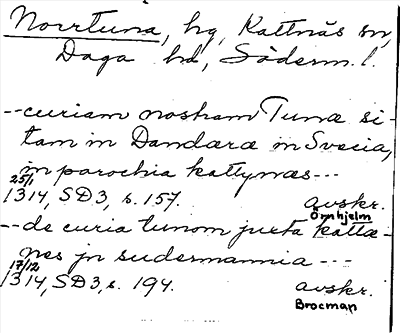 Norrtuna, hg, Kattnäs sn,
Daga hd, Söderm. l.
--curiam nostram Tunæ si-
tam in Dandaræ in Svecia,
in parochia kattynæs---
25/1 1314, SD3, s. 157. avskr. Örnhjelm
--de curia tunom juxta kattæ-
nes jn sudermannia ---
17/12 1314, SD3, s. 194. avskr. Brocman